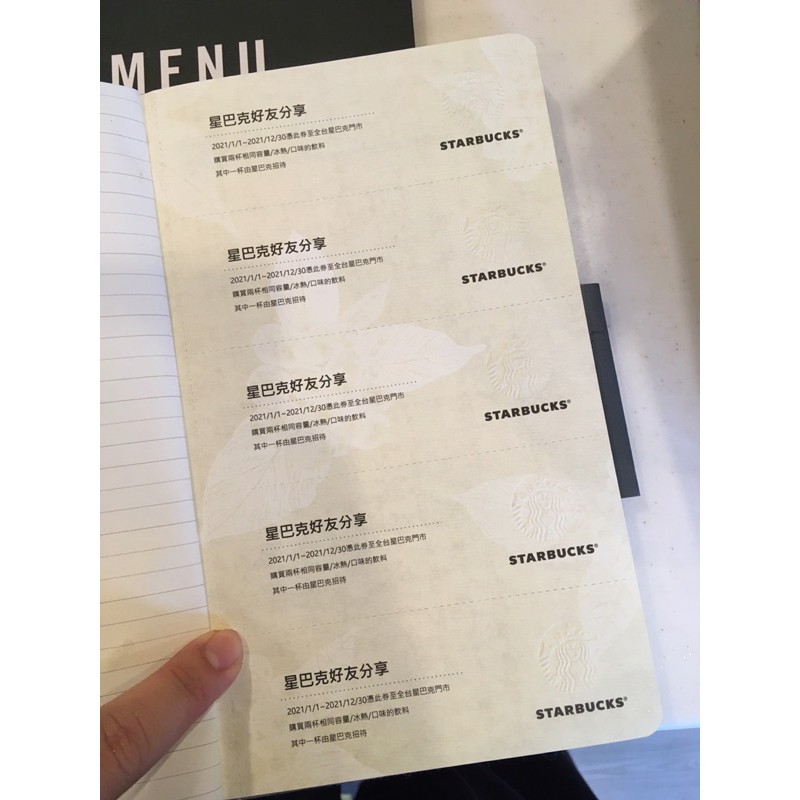 MENU
星巴克好友分享
2021/1/1~2021/12/30憑此券至全台星巴克門市
購買兩杯相同容量/冰熱/口味的飲料
其中一杯由星巴克招待
STARBUCKS®
星巴克好友分享
2021/1/1~2021/12/30憑此券至全台星巴克門市
購買兩杯相同容量/冰熱/口味的飲料
其中一杯由星巴克招待
STARBUCKS®
星巴克好友分享
2021/1/1~2021/12/30憑此券至全台星巴克門市
購買兩杯相同容量/冰熱/口味的飲料
其中一杯由星巴克招待
STARBUCKS®
星巴克好友分享
2021/1/1~2021/12/30憑此券至全台星巴克門市
購買兩杯相同容量/冰熱/口味的飲料
其中一杯由星巴克招待
STARBUCKS®
星巴克好友分享
2021/1/1~2021/12/30憑此券至全台星巴克門市
購買兩杯相同容量/冰熱/口味的飲料
其中一杯由星巴克招待
STARBUCKS®